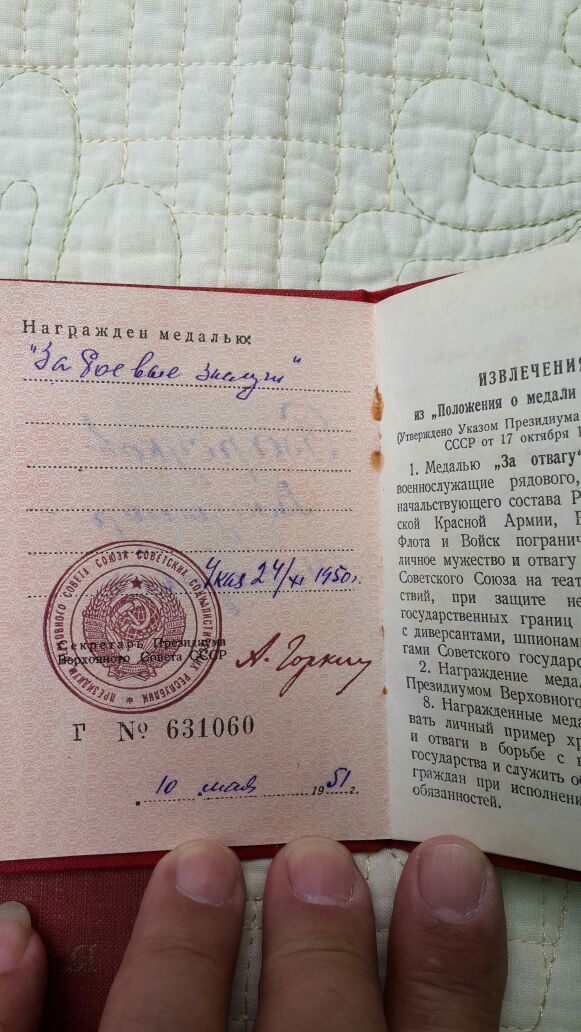 Награжден медалью:
"За боевые заслуги"
Указ 24/XI 1950г.
ПРЕЗИДИУМ ВЕРХОВНОГО СОВЕТА СОЮЗА СОВЕТСКИХ СОЦИАЛИСТИЧЕСКИХ РЕСПУБЛИК
Секретарь Президиума
Верховного Совета СССР
А. Горкин
Г № 631060
10 мая 1951г.
ИЗВЛЕЧЕНИЯ
из „Положения о медали
(Утверждено Указом Президиума
СССР от 17 октября 1
1. Медалью „За отвагу"
военнослужащие рядового,
начальствующего состава Р
ской Красной Армии, В
Флота и Войск погранич
личное мужество и отвагу
Советского Союза на теат
ствий, при защите не
государственных границ
с диверсантами, шпионам
гами Советского государс
2. Награждение медал
Президиумом Верховного
8. Награжденные меда
вать личный пример хр
и отваги в борьбе с
государства и служить об
граждан при исполнени
обязанностей.